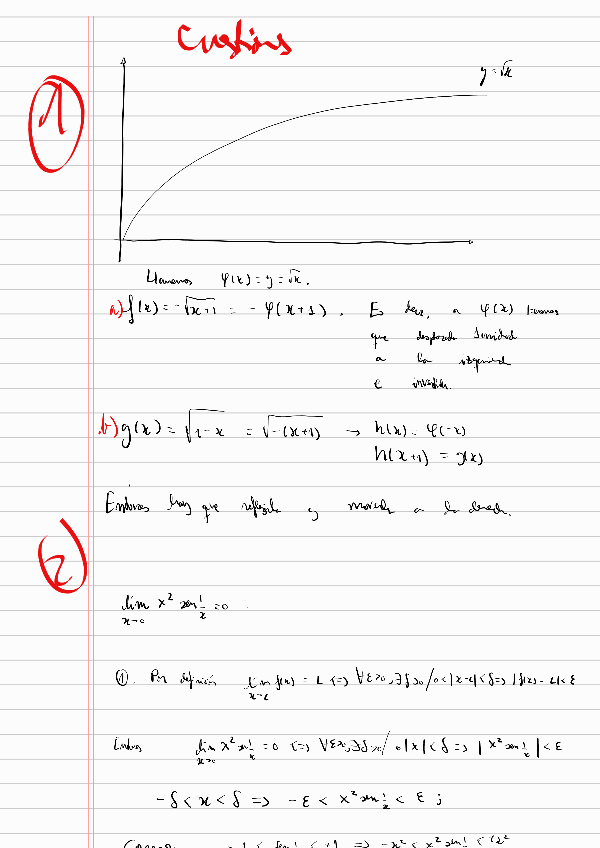 Cuestiones
1
y = √x
Llamamos φ(x) = y = √x.
a) f(x) = -√(x+1) = - φ(x+1). Es decir, a φ(x) tenemos
que desplazarla 1 unidad
a la izquierda
e invertirla.
b) g(x) = √(1-x) = √(-(x+1)) → h(x) = φ(-x)
h(x+1) = g(x)
Entonces hay que reflejarla y moverla a la derecha.
2
lim x→0 x² sen 1/x = 0
①. Por definición lim x→c f(x) = L <=> ∀ε>0, ∃δ>0 / 0<|x-c|<δ => |f(x)-L|<ε
Entonces lim x→0 x² sen 1/x = 0 <=> ∀ε>0, ∃δ>0 / 0<|x|<δ => |x² sen 1/x|<ε
-δ < x < δ => -ε < x² sen 1/x < ε ;